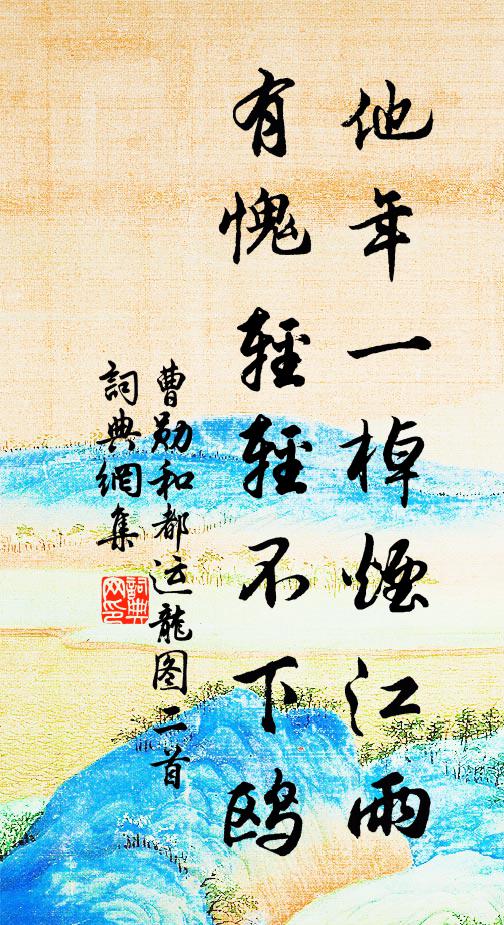 他年一棹煙江雨
有愧輕輕不下鸥
曹勋和都运龍图二首
詞典網集
詞典
网印